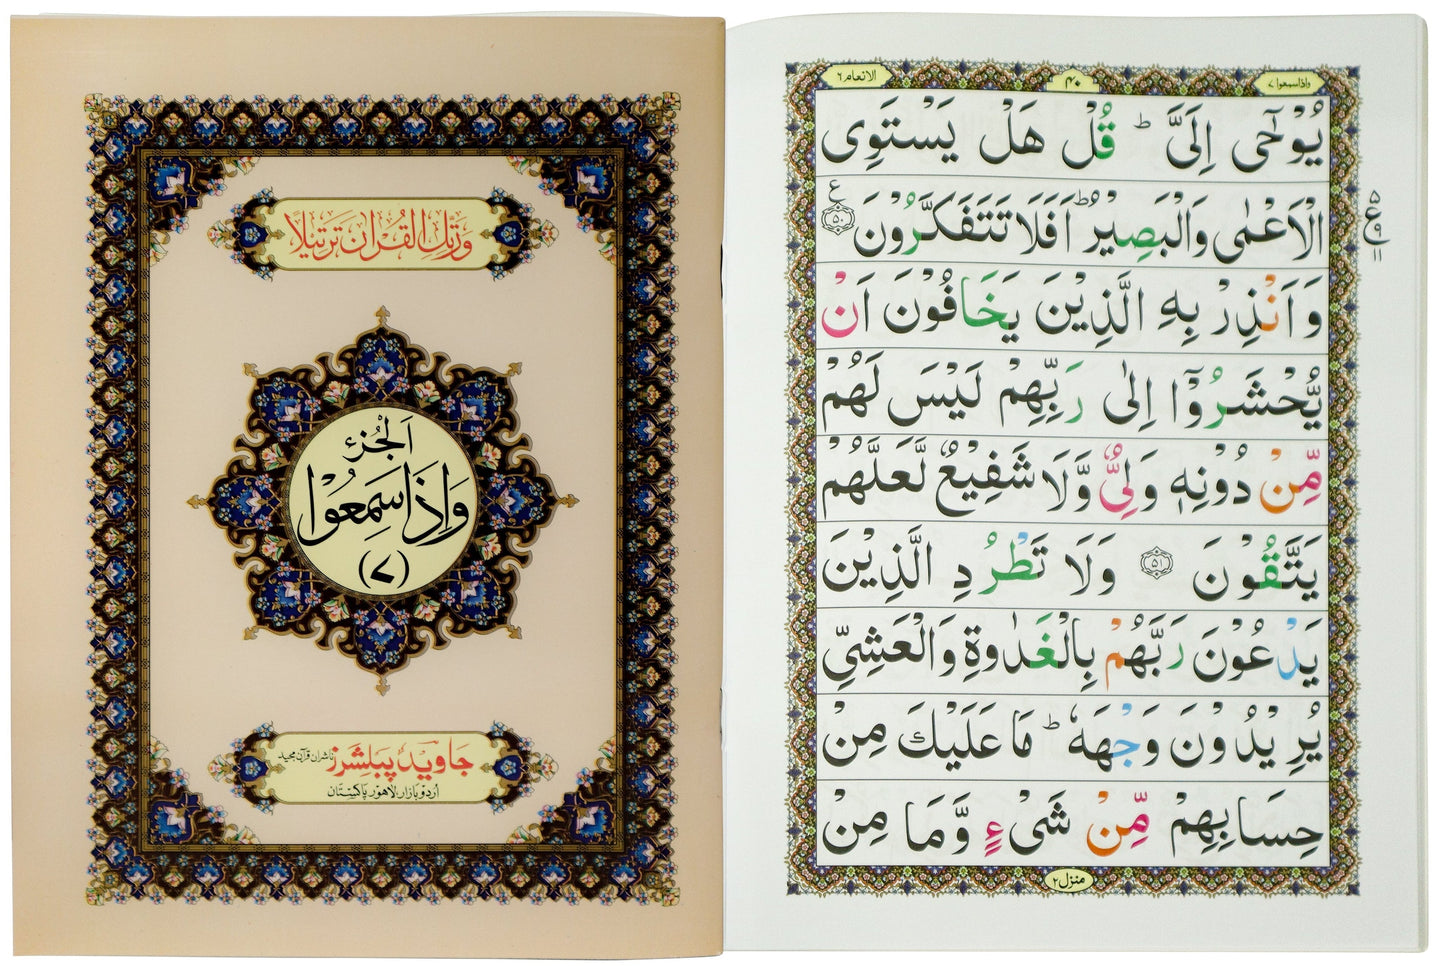 وَرَتِّلِ الْقُرْاٰنَ تَرْتِيْلًا
اَلْجُزْءُ
وَاِذَا سَمِعُوْا
(٧)
جاوید پبلشرز ناشران قرآن مجید
اردو بازار لاھور پاکستان
واذاسمعوا ٧
٢٠٠
الانعام ٦
يُوْحٰۤى اِلَىَّ ؕ قُلْ هَلْ يَسْتَوِى
الْاَعْمٰى وَالْبَصِيْرُ ؕ اَفَلَا تَتَفَكَّرُوْنَ ﴿٥٠﴾ ع
٥
ع
٩
١١
وَاَنْذِرْ بِهِ الَّذِيْنَ يَخَافُوْنَ اَنْ
يُّحْشَرُوْۤا اِلٰى رَبِّهِمْ لَيْسَ لَهُمْ
مِّنْ دُوْنِهٖ وَلِىٌّ وَّلَا شَفِيْعٌ لَّعَلَّهُمْ
يَتَّقُوْنَ ﴿٥١﴾ وَلَا تَطْرُدِ الَّذِيْنَ
يَدْعُوْنَ رَبَّهُمْ بِالْغَدٰوةِ وَالْعَشِىِّ
يُرِيْدُوْنَ وَجْهَهٗ ؕ مَا عَلَيْكَ مِنْ
حِسَابِهِمْ مِّنْ شَىْءٍ وَّمَا مِنْ
منزل ٢